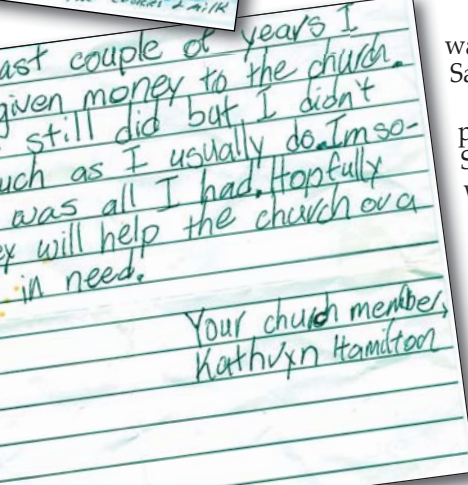 COOKIES & MILK
ast couple of years I
given money to the church.
still did but, I didn't
uch as I usually do. Im so-
was all I had. Hopfully
ey will help the church or a
in need.
Your church member,
Kathryn Hamilton
wa
Sa
p
S
w